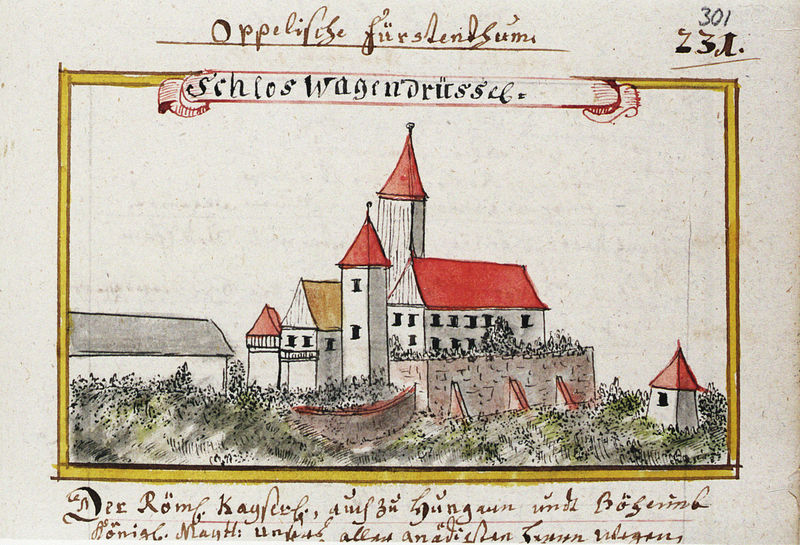 Oppelische Fürstenthum.
301
231.
Schlos Wagendrüssel.
Der Röml. Kayserl., auch zu Hungarn undt Böheimb
Königl. Maytt: unsers aller gnädigsten Herrn wegen,